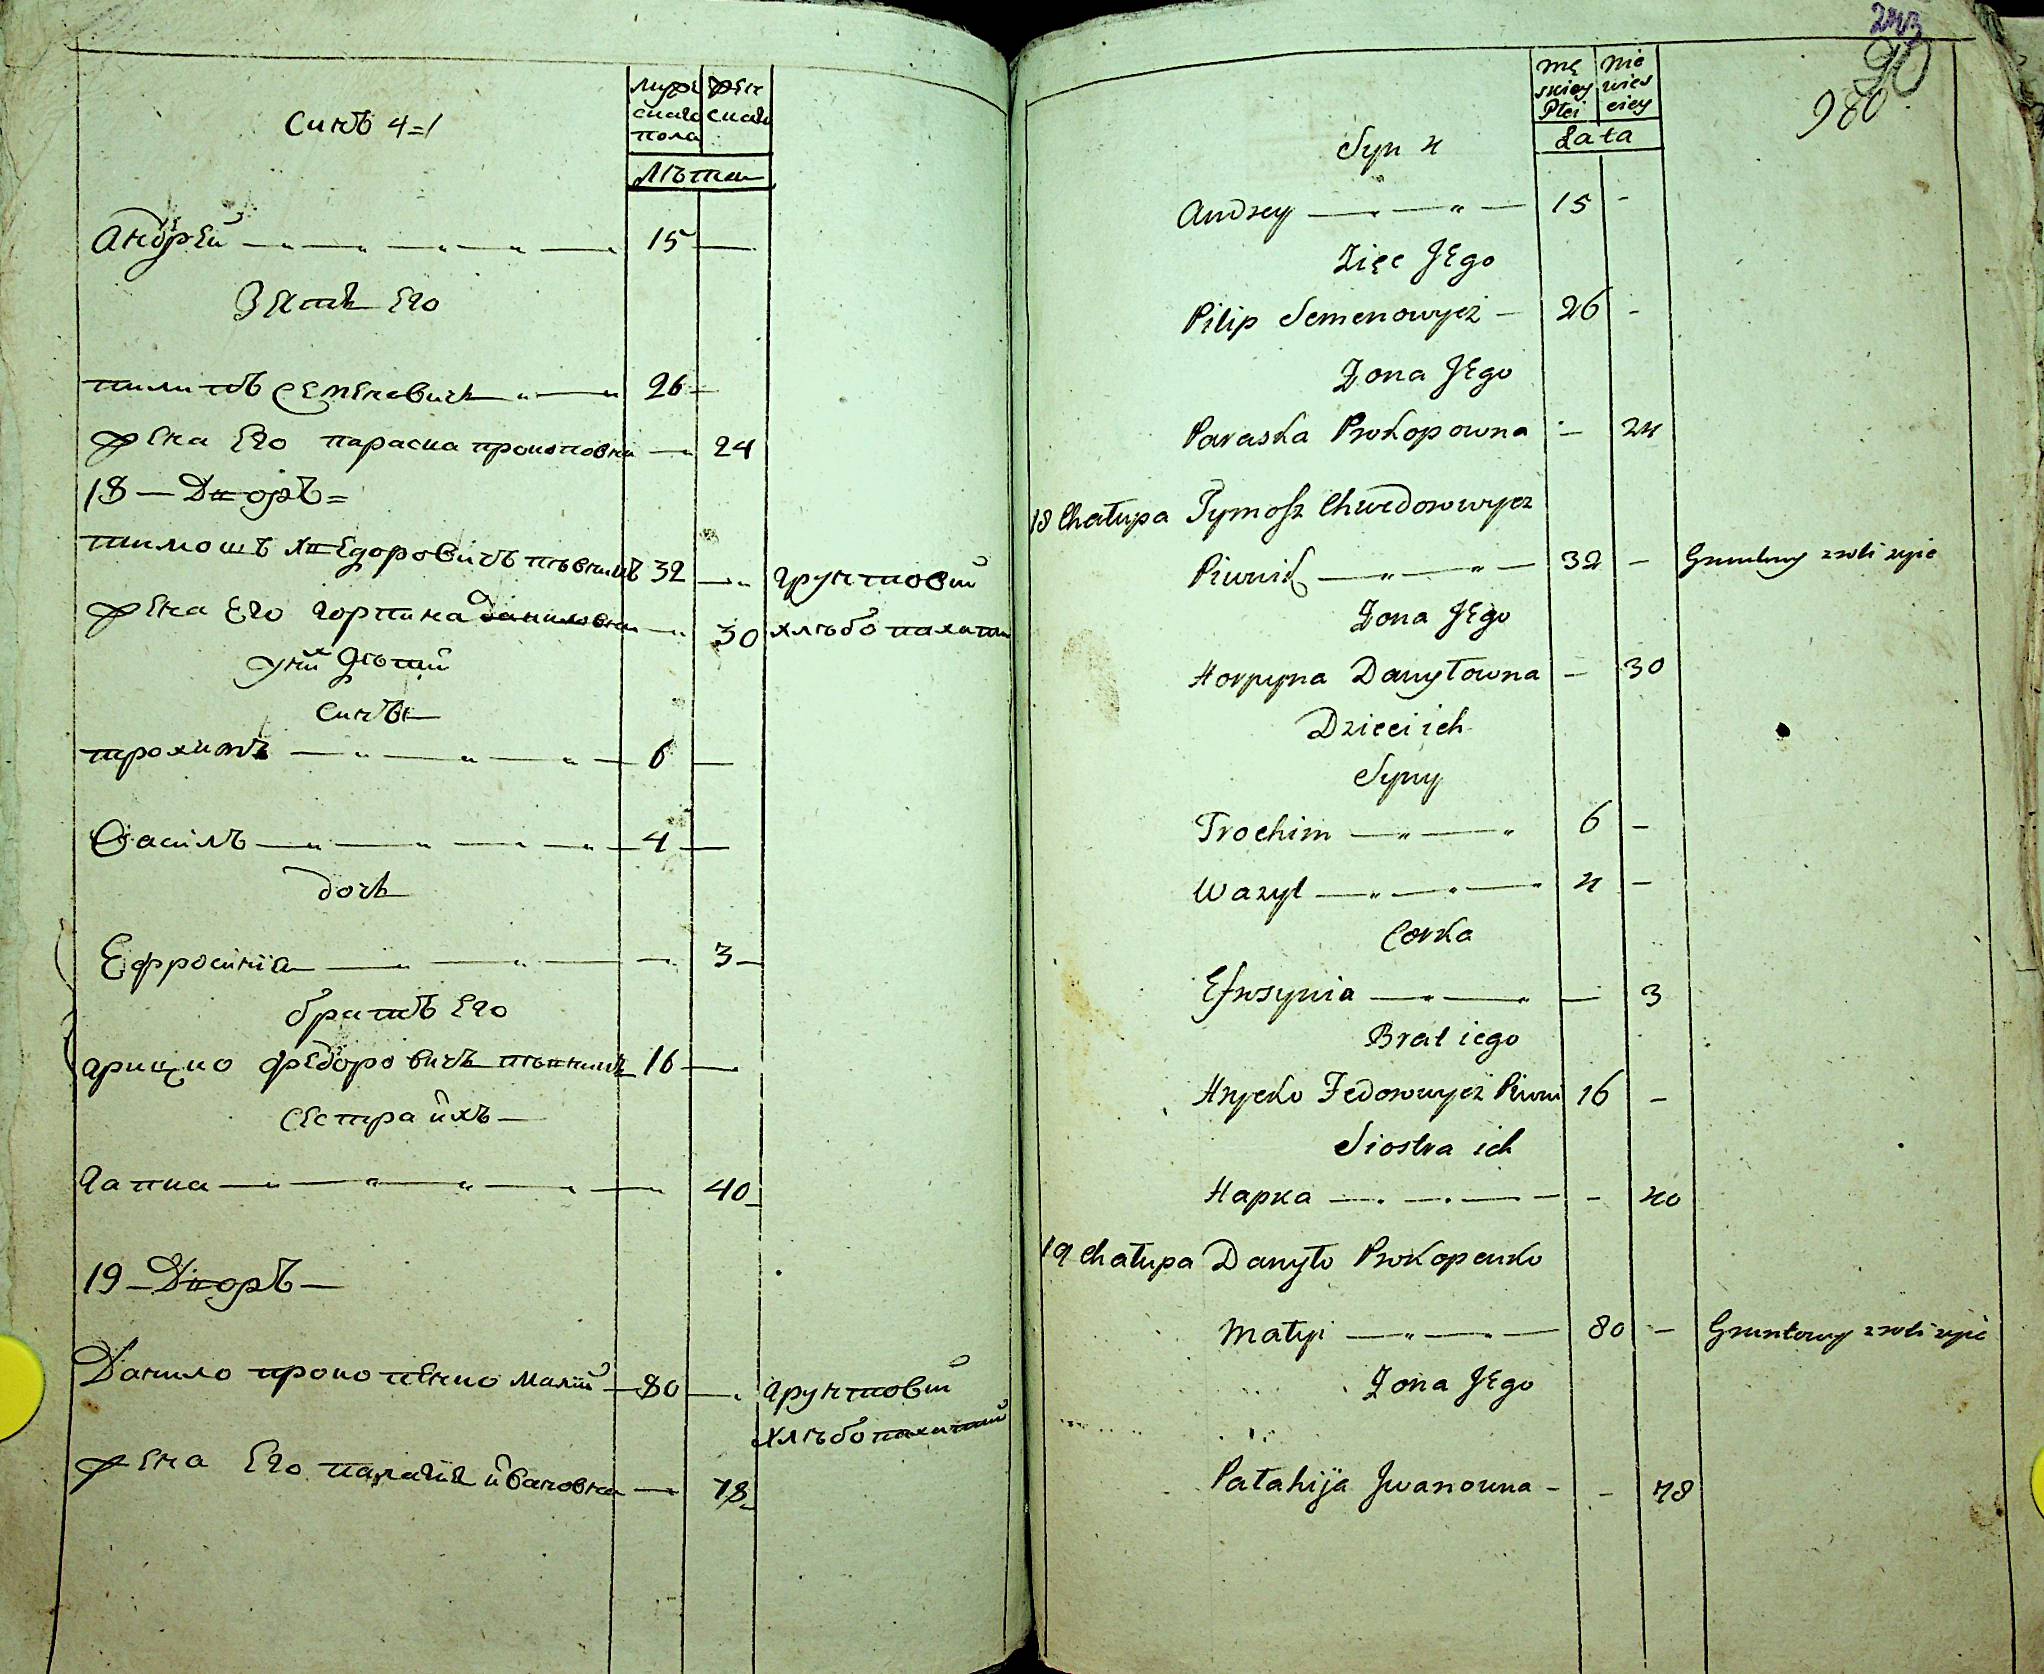 Синъ 4=1
мужескаго пола
женскаго
Лѣта
Андрей 15 —
Зять Его
пилипъ Семеновичь 26 —
жена Его параска прокоповна — 24
18 — Дворъ =
тимошъ хведоровичъ пѣвникъ 32 — грунтовій
жена Его горпина даниловна — 30 хлѣбопахатній
у нихъ Дѣтій
Синъвя
трохимъ 6 —
Василъ 4 —
дочь
Ефросинія — 3 —
братъ Его
грицко федоровичъ пѣвникъ 16 —
Сестра ихъ —
гапка — 40
19 — Дворъ —
Данило прокопенко малій 80 — грунтовій
хлѣбопахатній
жена Его палагія ивановна — 78
243
90
980
męskiey Płci
niewiesciey
Lata
Syn 4
Andrey 15 -
Zięc JEgo
Pilip Semenowycz — 26 -
Zona JEgo
Paraska Prokopowna — 24
18 Chałupa Tymosz Chwedorowycz
Piwnik 32 — Gruntowy z roli żyie
Zona JEgo
Horpyna Danyłowna — 30
Dzieci ich
Syny
Trochim 6 —
Wazyl 4 —
Corka
Efrosynia — 3
Brat iego
Hrycko Fedorowycz Piwni 16 —
Siostra ich
Hapka - 40
19 Chałupa Danyło Prokopenko
Małyi 80 — Gruntowy z roli żyie
Zona JEgo
Pałahija Jwanowna - - 78